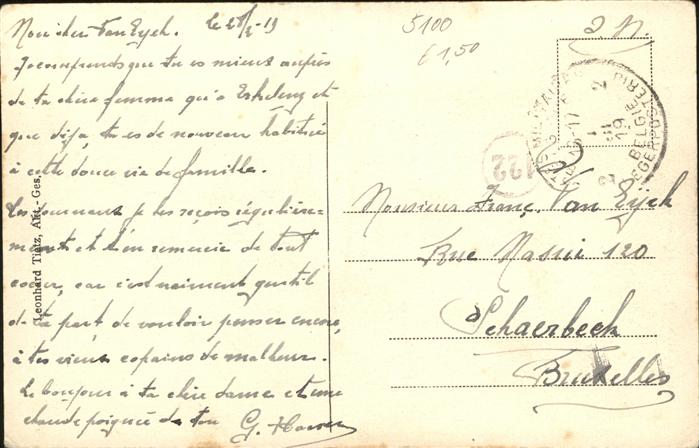 Mon cher Van Eyck. le 28/2-19
Je comprends que tu es mieux auprès
de ta chère femme qu'à Erkelenz et
que déjà, tu es de nouveau habitué
à cette douce vie de famille.
Les journaux je les reçois régulière-
ment et t'en remercie de tout
coeur, car c'est vraiment gentil
de ta part de vouloir penser encore,
à tes vieux copains de malheur.
Le bonjour à ta chère dame et une
chaude poignée de ton G.
Leonhard Tietz, Akt.-Ges.
5100
€1,50
S. M.
POSTES MILITAIRES
BELGIE
LEGERPOSTERIJ
122
Monsieur Franç. Van Eyck
Rue Massui 120
Schaerbeek
Bruxelles